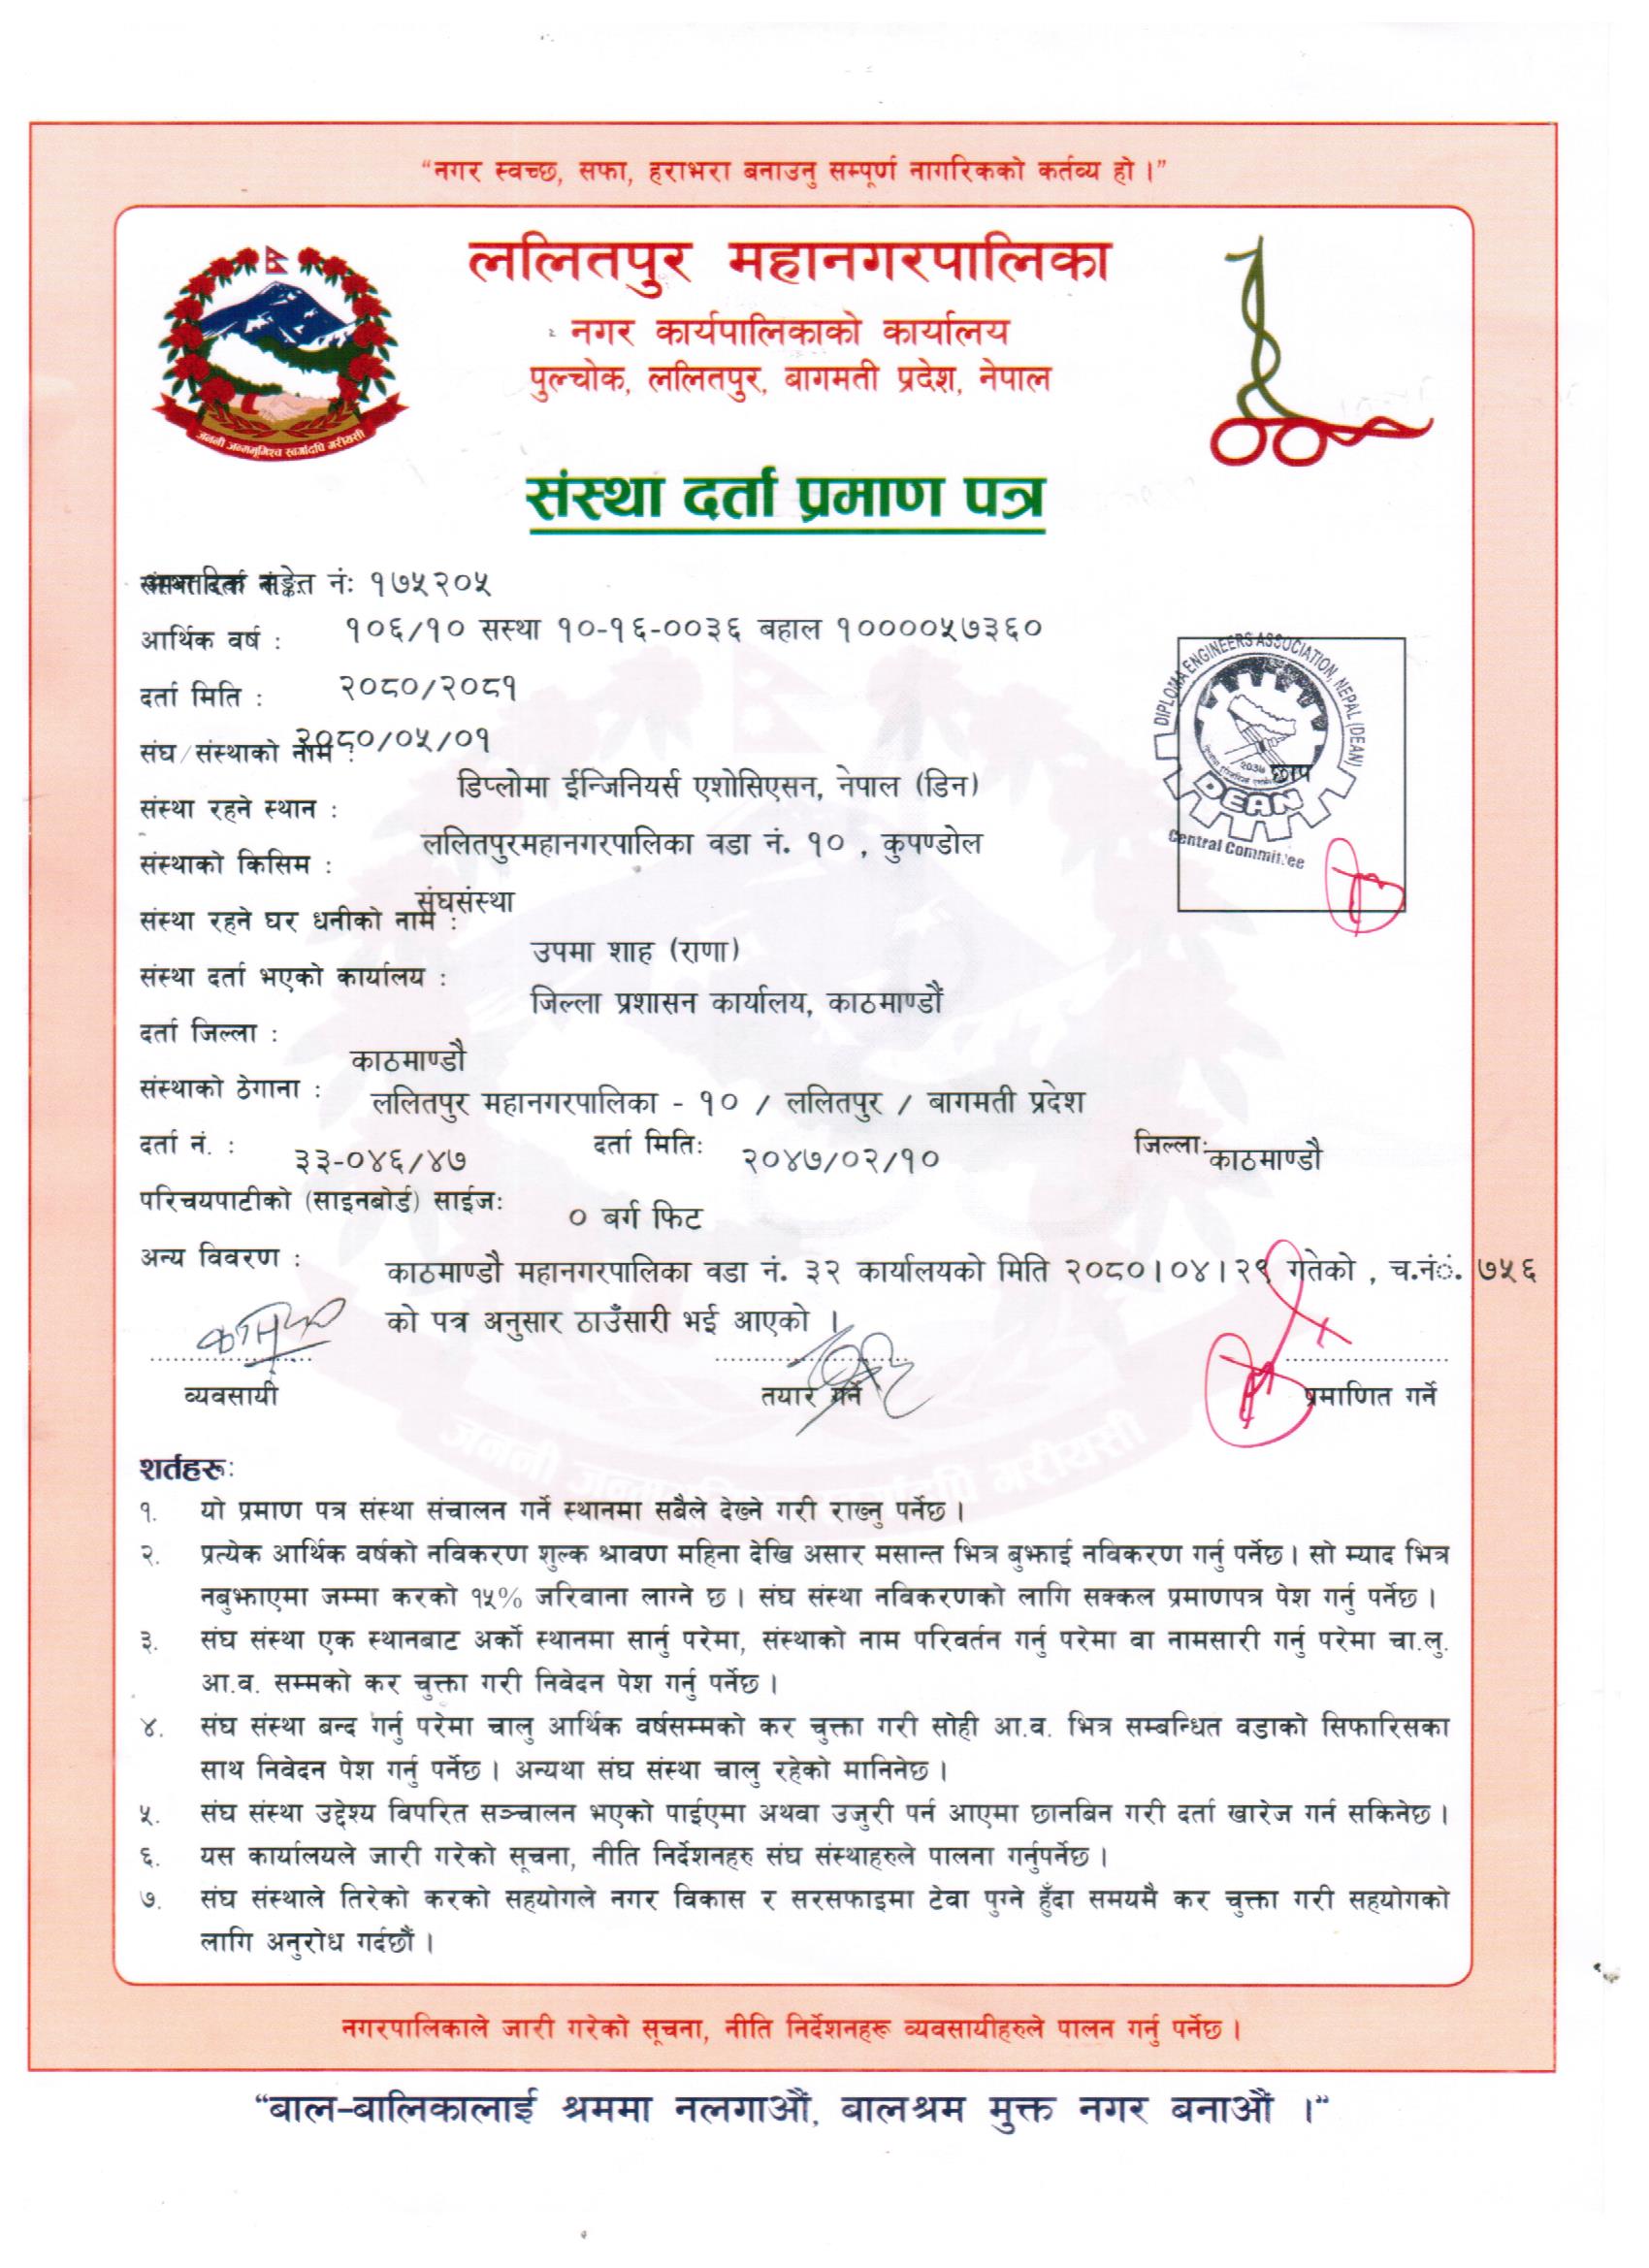 “नगर स्वच्छ, सफा, हराभरा बनाउनु सम्पूर्ण नागरिकको कर्तव्य हो ।”
ललितपुर महानगरपालिका
नगर कार्यपालिकाको कार्यालय
पुल्चोक, ललितपुर, बागमती प्रदेश, नेपाल
जननी जन्मभूमिश्च स्वर्गादपि गरीयसी
संस्था दर्ता प्रमाण पत्र
सङ्केत नं: १७५२०५
आर्थिक वर्ष : १०६/१० सस्था १०-१६-००३६ बहाल १००००५७३६०
दर्ता मिति : २०८०/२०८१
संघ/संस्थाको नाम : २०८०/०५/०१
संस्था रहने स्थान : डिप्लोमा ईन्जिनियर्स एशोसिएसन, नेपाल (डिन)
संस्थाको किसिम : ललितपुरमहानगरपालिका वडा नं. १० , कुपण्डोल
संस्था रहने घर धनीको नाम : संघसंस्था
संस्था दर्ता भएको कार्यालय : उपमा शाह (राणा)
दर्ता जिल्ला : जिल्ला प्रशासन कार्यालय, काठमाण्डौं
काठमाण्डौ
संस्थाको ठेगाना : ललितपुर महानगरपालिका - १० / ललितपुर / बागमती प्रदेश
दर्ता नं. : ३३-०४६/४७ दर्ता मिति: २०४७/०२/१० जिल्ला: काठमाण्डौ
परिचयपाटीको (साइनबोर्ड) साईज: ० बर्ग फिट
अन्य विवरण : काठमाण्डौ महानगरपालिका वडा नं. ३२ कार्यालयको मिति २०८०।०४।२९ गतेको , च.नंं. ७५६
को पत्र अनुसार ठाउँसारी भई आएको ।
DIPLOMA ENGINEERS ASSOCIATION, NEPAL (DEAN)
छाप
DEAN
Central Committee
व्यवसायी तयार गर्ने प्रमाणित गर्ने
शर्तहरू:
१. यो प्रमाण पत्र संस्था संचालन गर्ने स्थानमा सबैले देख्ने गरी राख्नु पर्नेछ ।
२. प्रत्येक आर्थिक वर्षको नविकरण शुल्क श्रावण महिना देखि असार मसान्त भित्र बुझाई नविकरण गर्नु पर्नेछ । सो म्याद भित्र
नबुझाएमा जम्मा करको १५% जरिवाना लाग्ने छ । संघ संस्था नविकरणको लागि सक्कल प्रमाणपत्र पेश गर्नु पर्नेछ ।
३. संघ संस्था एक स्थानबाट अर्को स्थानमा सार्नु परेमा, संस्थाको नाम परिवर्तन गर्नु परेमा वा नामसारी गर्नु परेमा चा.लु.
आ.व. सम्मको कर चुक्ता गरी निवेदन पेश गर्नु पर्नेछ ।
४. संघ संस्था बन्द गर्नु परेमा चालु आर्थिक वर्षसम्मको कर चुक्ता गरी सोही आ.व. भित्र सम्बन्धित वडाको सिफारिसका
साथ निवेदन पेश गर्नु पर्नेछ । अन्यथा संघ संस्था चालु रहेको मानिनेछ ।
५. संघ संस्था उद्देश्य विपरित सञ्चालन भएको पाईएमा अथवा उजुरी पर्न आएमा छानबिन गरी दर्ता खारेज गर्न सकिनेछ ।
६. यस कार्यालयले जारी गरेको सूचना, नीति निर्देशनहरु संघ संस्थाहरुले पालना गर्नुपर्नेछ ।
७. संघ संस्थाले तिरेको करको सहयोगले नगर विकास र सरसफाइमा टेवा पुग्ने हुँदा समयमै कर चुक्ता गरी सहयोगको
लागि अनुरोध गर्दछौं ।
नगरपालिकाले जारी गरेको सूचना, नीति निर्देशनहरू व्यवसायीहरुले पालन गर्नु पर्नेछ ।
“बाल-बालिकालाई श्रममा नलगाऔं, बालश्रम मुक्त नगर बनाऔं ।”